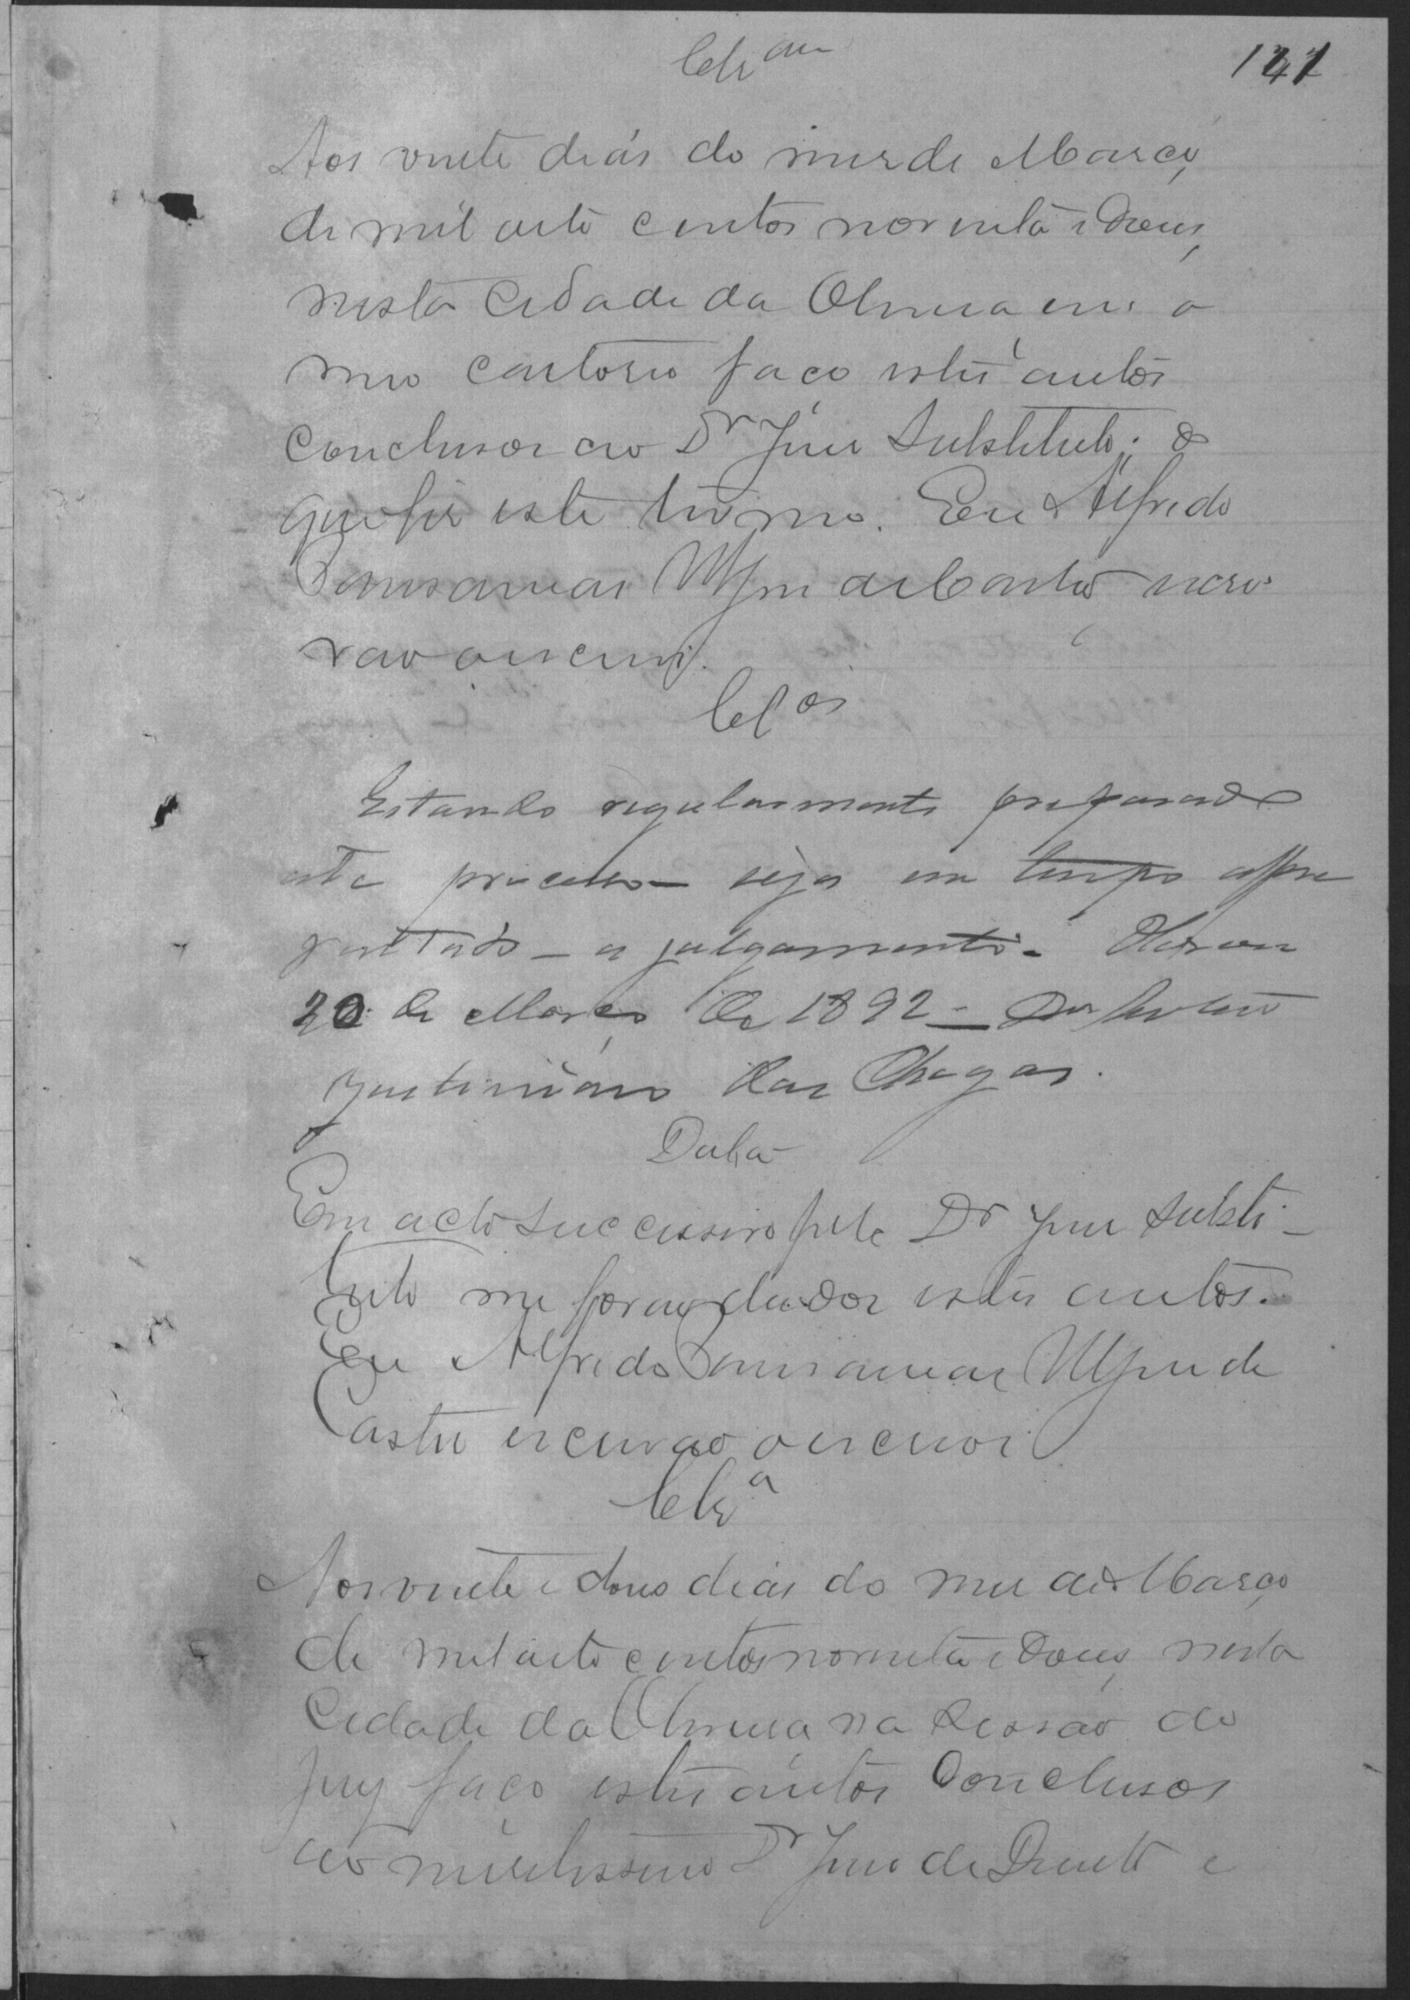 Clsam
121
Aos vinte dias do mes de Março,
de mil oito centos noventa e dous,
nesta Cidade da Oliveira em o
meu cartorio faço estes autos
conclusos ao Dr Juis Substituto; do
que fis este termo. Eu Alfredo
Pausanias Alves de Castro escri-
vão o escrevi.
Clos
Estando regularmente preparado
este processo — seja em tempo apre
sentado — a julgamento. Oliveira
20 de Março de 1892 — 
Justiniano das Chagas.
Data
Em acto successivo pelo Dr Juis Substi-
tuto me forão dados estes autos.
Eu Alfredo Pausanias Alves de
Castro escrivão o escrevi
Clsa
Aos vinte e dous dias do mes de Março
de mil oito centos noventa e dous, nesta
Cidade da Oliveira na sessão do
jury faço estes autos conclusos
ao meritissimo Dr Juis de Direito e